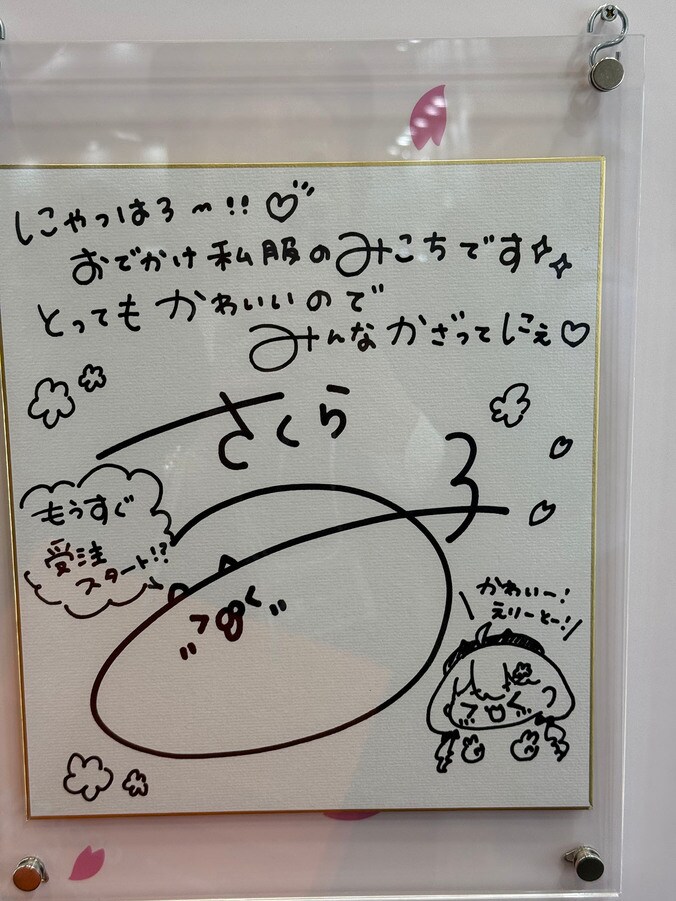 にゃっはろ〜!!♡
おでかけ私服のみこちです✧✧
とってもかわいいので
みんなかざってにぇ♡
さくら
みこ
もうすぐ
受注
スタート!?
かわいー!
えりーとー!